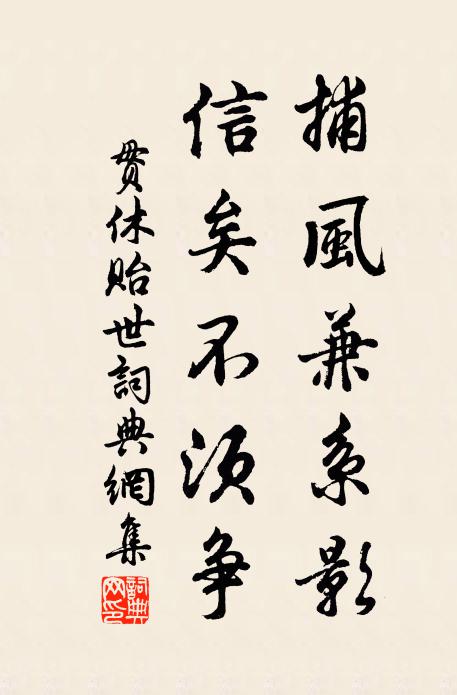 捕風兼系影
信矣不須争
貫休貽世詞典網集
詞典网印